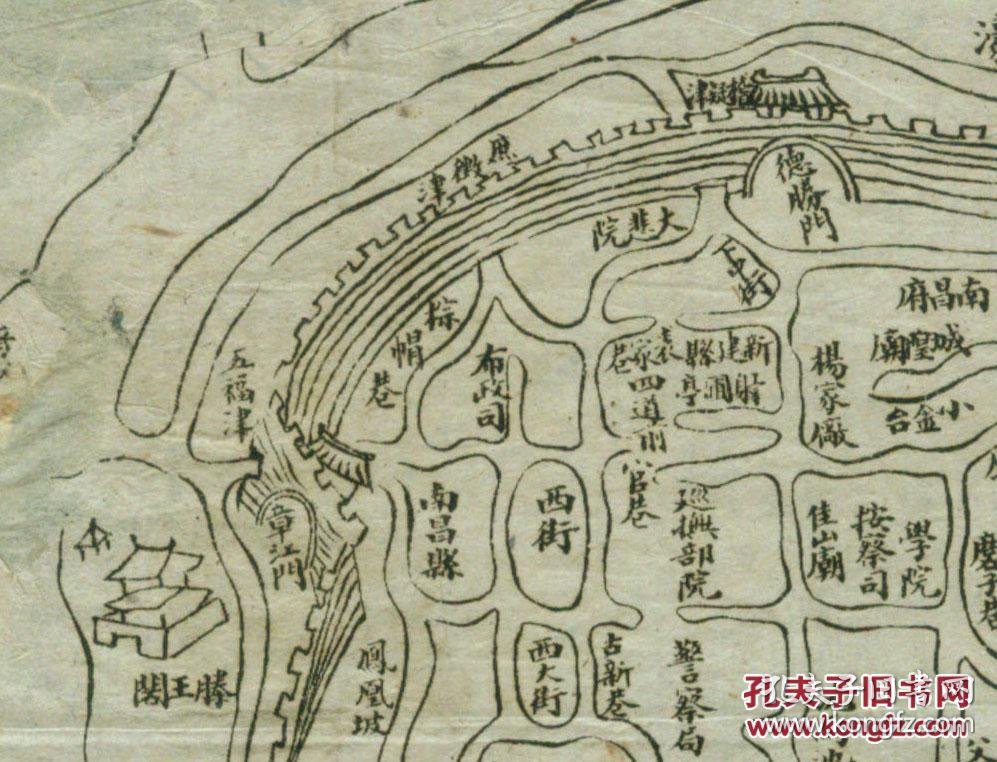 德勝門
津徵應
五福津
院悲大
下中街
棕帽巷
布政司
新建縣
袁家巷
四道前
府昌南
廟隍城
台金小
楊家廠
章江門
南昌縣
西街
官巷
巡撫部院
佳山廟
按察司
學院
磨子巷
閣王滕
鳳凰坡
西大街
古新巷
警察局
孔夫子旧书网
www.kongfz.com